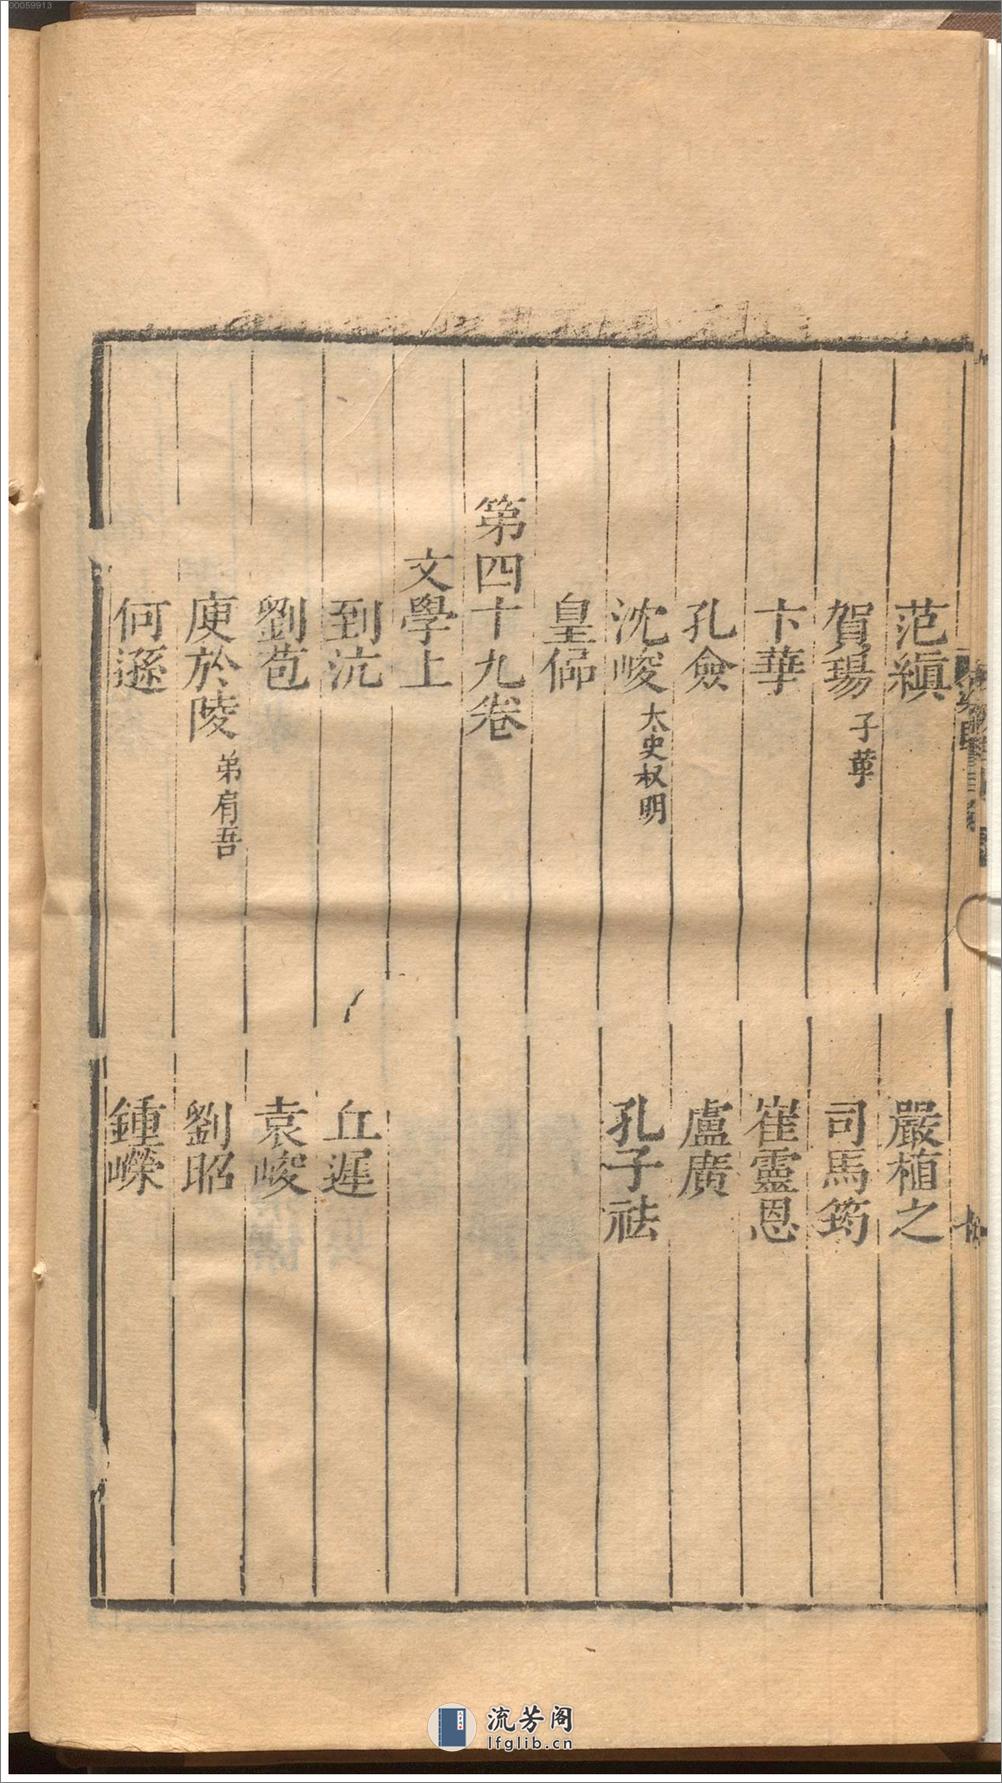 范縝　嚴植之
賀瑒子革　司馬筠
卞華　崔靈恩
孔僉　盧廣
沈峻太史叔明　孔子祛
皇侃
第四十九卷
文學上
到沆　丘遲
劉苞　袁峻
庾於陵弟肩吾　劉昭
何遜　鍾嶸
00059913
流芳阁
lfglib.cn